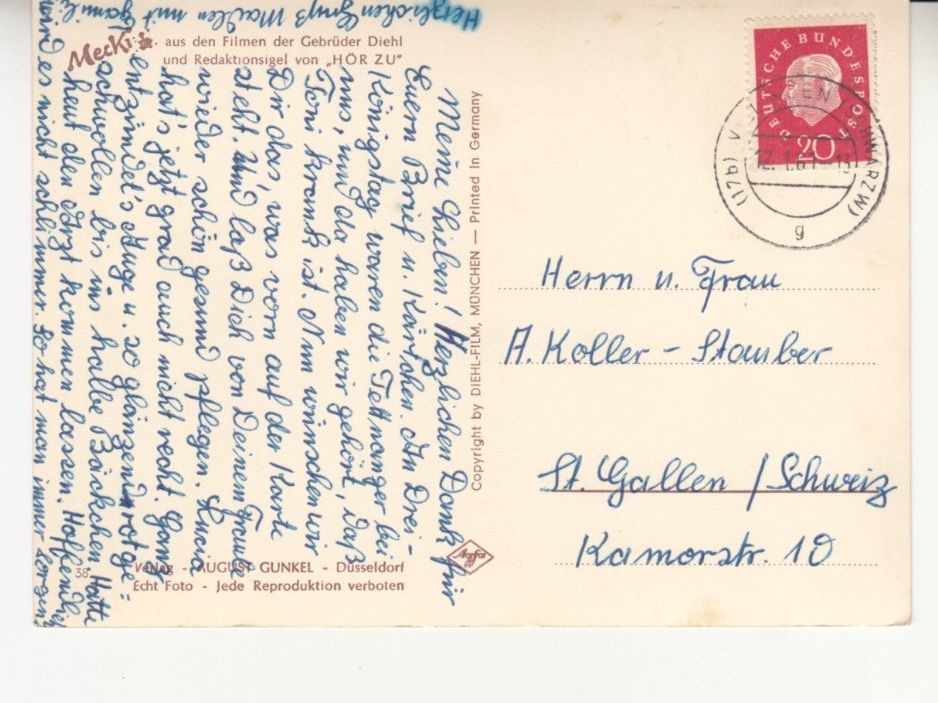 Mecki
aus den Filmen der Gebrüder Diehl
und Redaktionsigel von „HÖR ZU"
Meine Lieben! Herzlichen Dank für
Euern Brief u. Kärtchen. An Drei-
Königstag waren die Tettnanger bei
uns, und da haben wir gehört, daß
Toni krank ist. Nun wünschen wir
Dir das, was vorn auf der Karte
steht. Und laß Dich von Deiner Frau
wieder schön gesund pflegen.
hat's jetzt grad auch nicht recht. Ganz
entzündet's Auge u. so glänzend rot ge=
schwollen bis ins halbe Bäckchen. Hatte
heut den Arzt kommen lassen. Hoffentlich
wird es nicht schlimmer. So hat man immer Sorgen
Herzlichen Gruß
mit
38
Verlag - AUGUST GUNKEL - Düsseldorf
Echt Foto - Jede Reproduktion verboten
Copyright by DIEHL-FILM, MÜNCHEN — Printed in Germany
Agfa
DEUTSCHE BUNDESPOST
20
(17b)
g
Herrn u. Frau
A. Koller - Stauber
St. Gallen / Schweiz
Kamorstr. 10